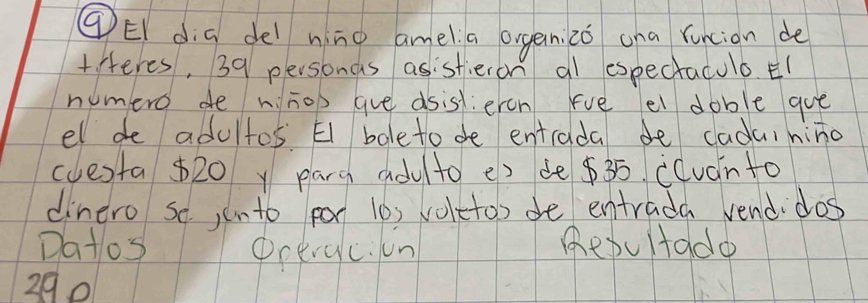 9 El dia del niño amelia organizó una funcion de
titeres, 39 personas asistieron al espectaculo. El
numero de niños que asistieron fue el doble que
el de adultos. El boleto de entrada de cadai niño
cuesta $20 y para adulto es de $35. ¿Cuánto
dinero se junto por los voletos de entrada vendidos
Datos Operacion Resultado
39 p